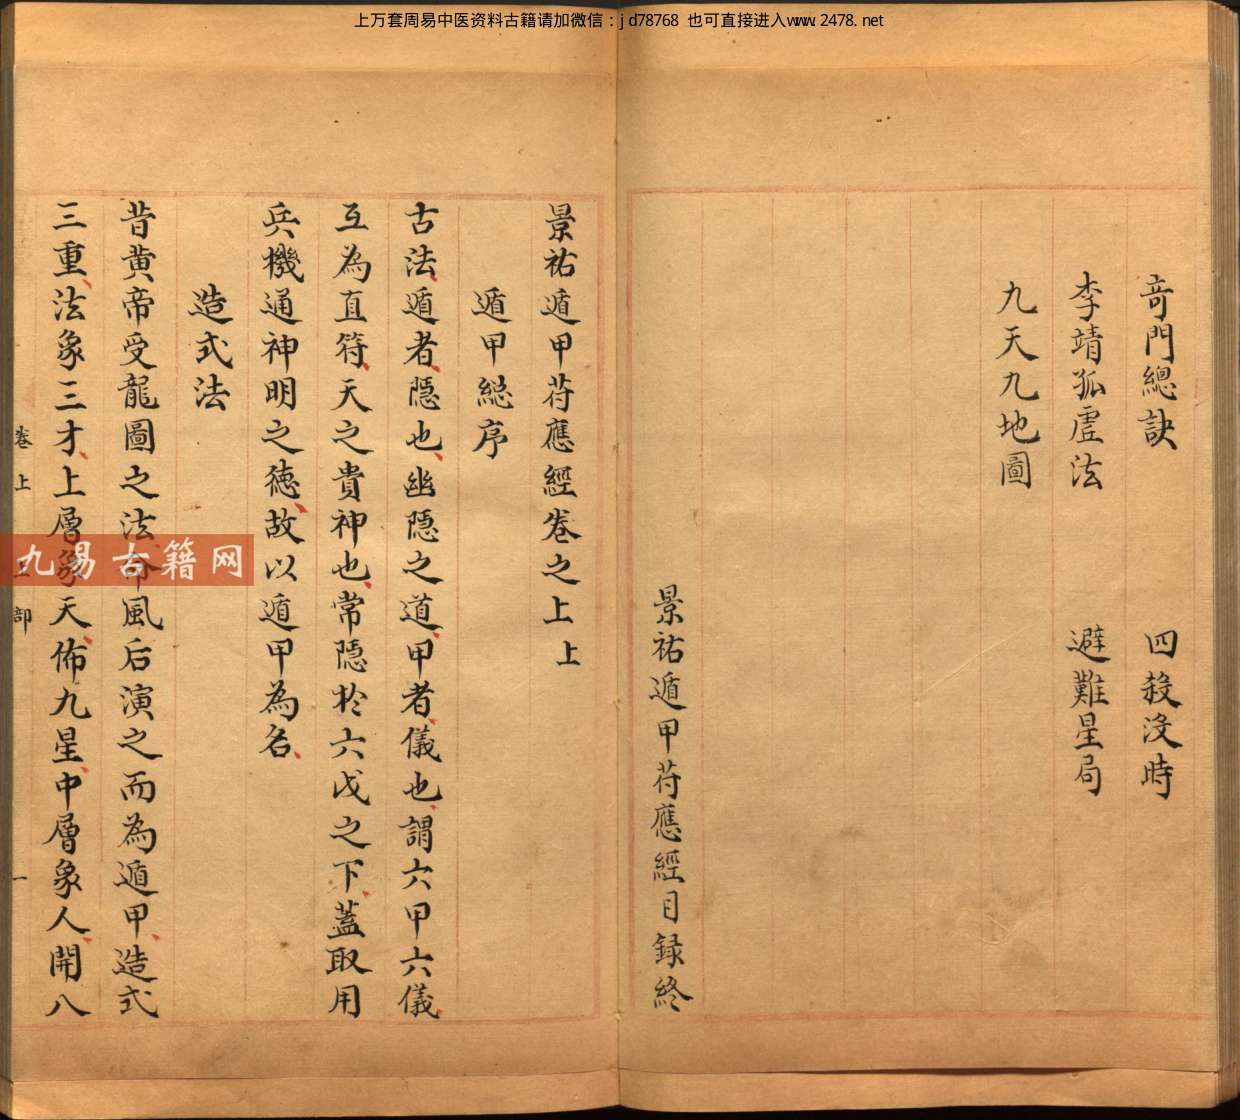 上万套周易中医资料古籍请加微信：jd78768 也可直接进入www.2478.net
奇門總訣 四殺沒時
李靖孤虛法 避難星局
九天九地圖
景祐遁甲苻應經目録終
景祐遁甲苻應經卷之上上
遁甲総序
古法遁者隱也幽隱之道甲者儀也謂六甲六儀
互為直符天之貴神也常隱於六戊之下蓋取用
兵機通神明之徳故以遁甲為名
造式法
昔黄帝受龍圖之法命風后演之而為遁甲造式
三重法象三才上層象天佈九星中層象人開八
卷上
部
一
九易古籍网